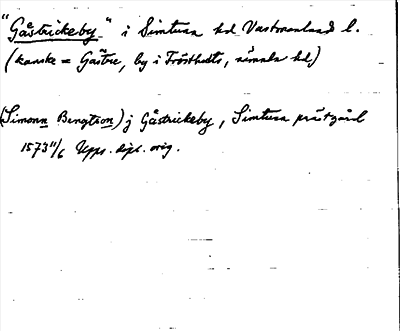 "Gåstrickeby" i Simtuna hd Vastmanland l.
(kanske = Gästre, by i Frösthults, samma hd)
(Simonn Bengtson) j Gåstrickeby, Simtuna prästgård
1573 11/6 Upps. dipl. orig.